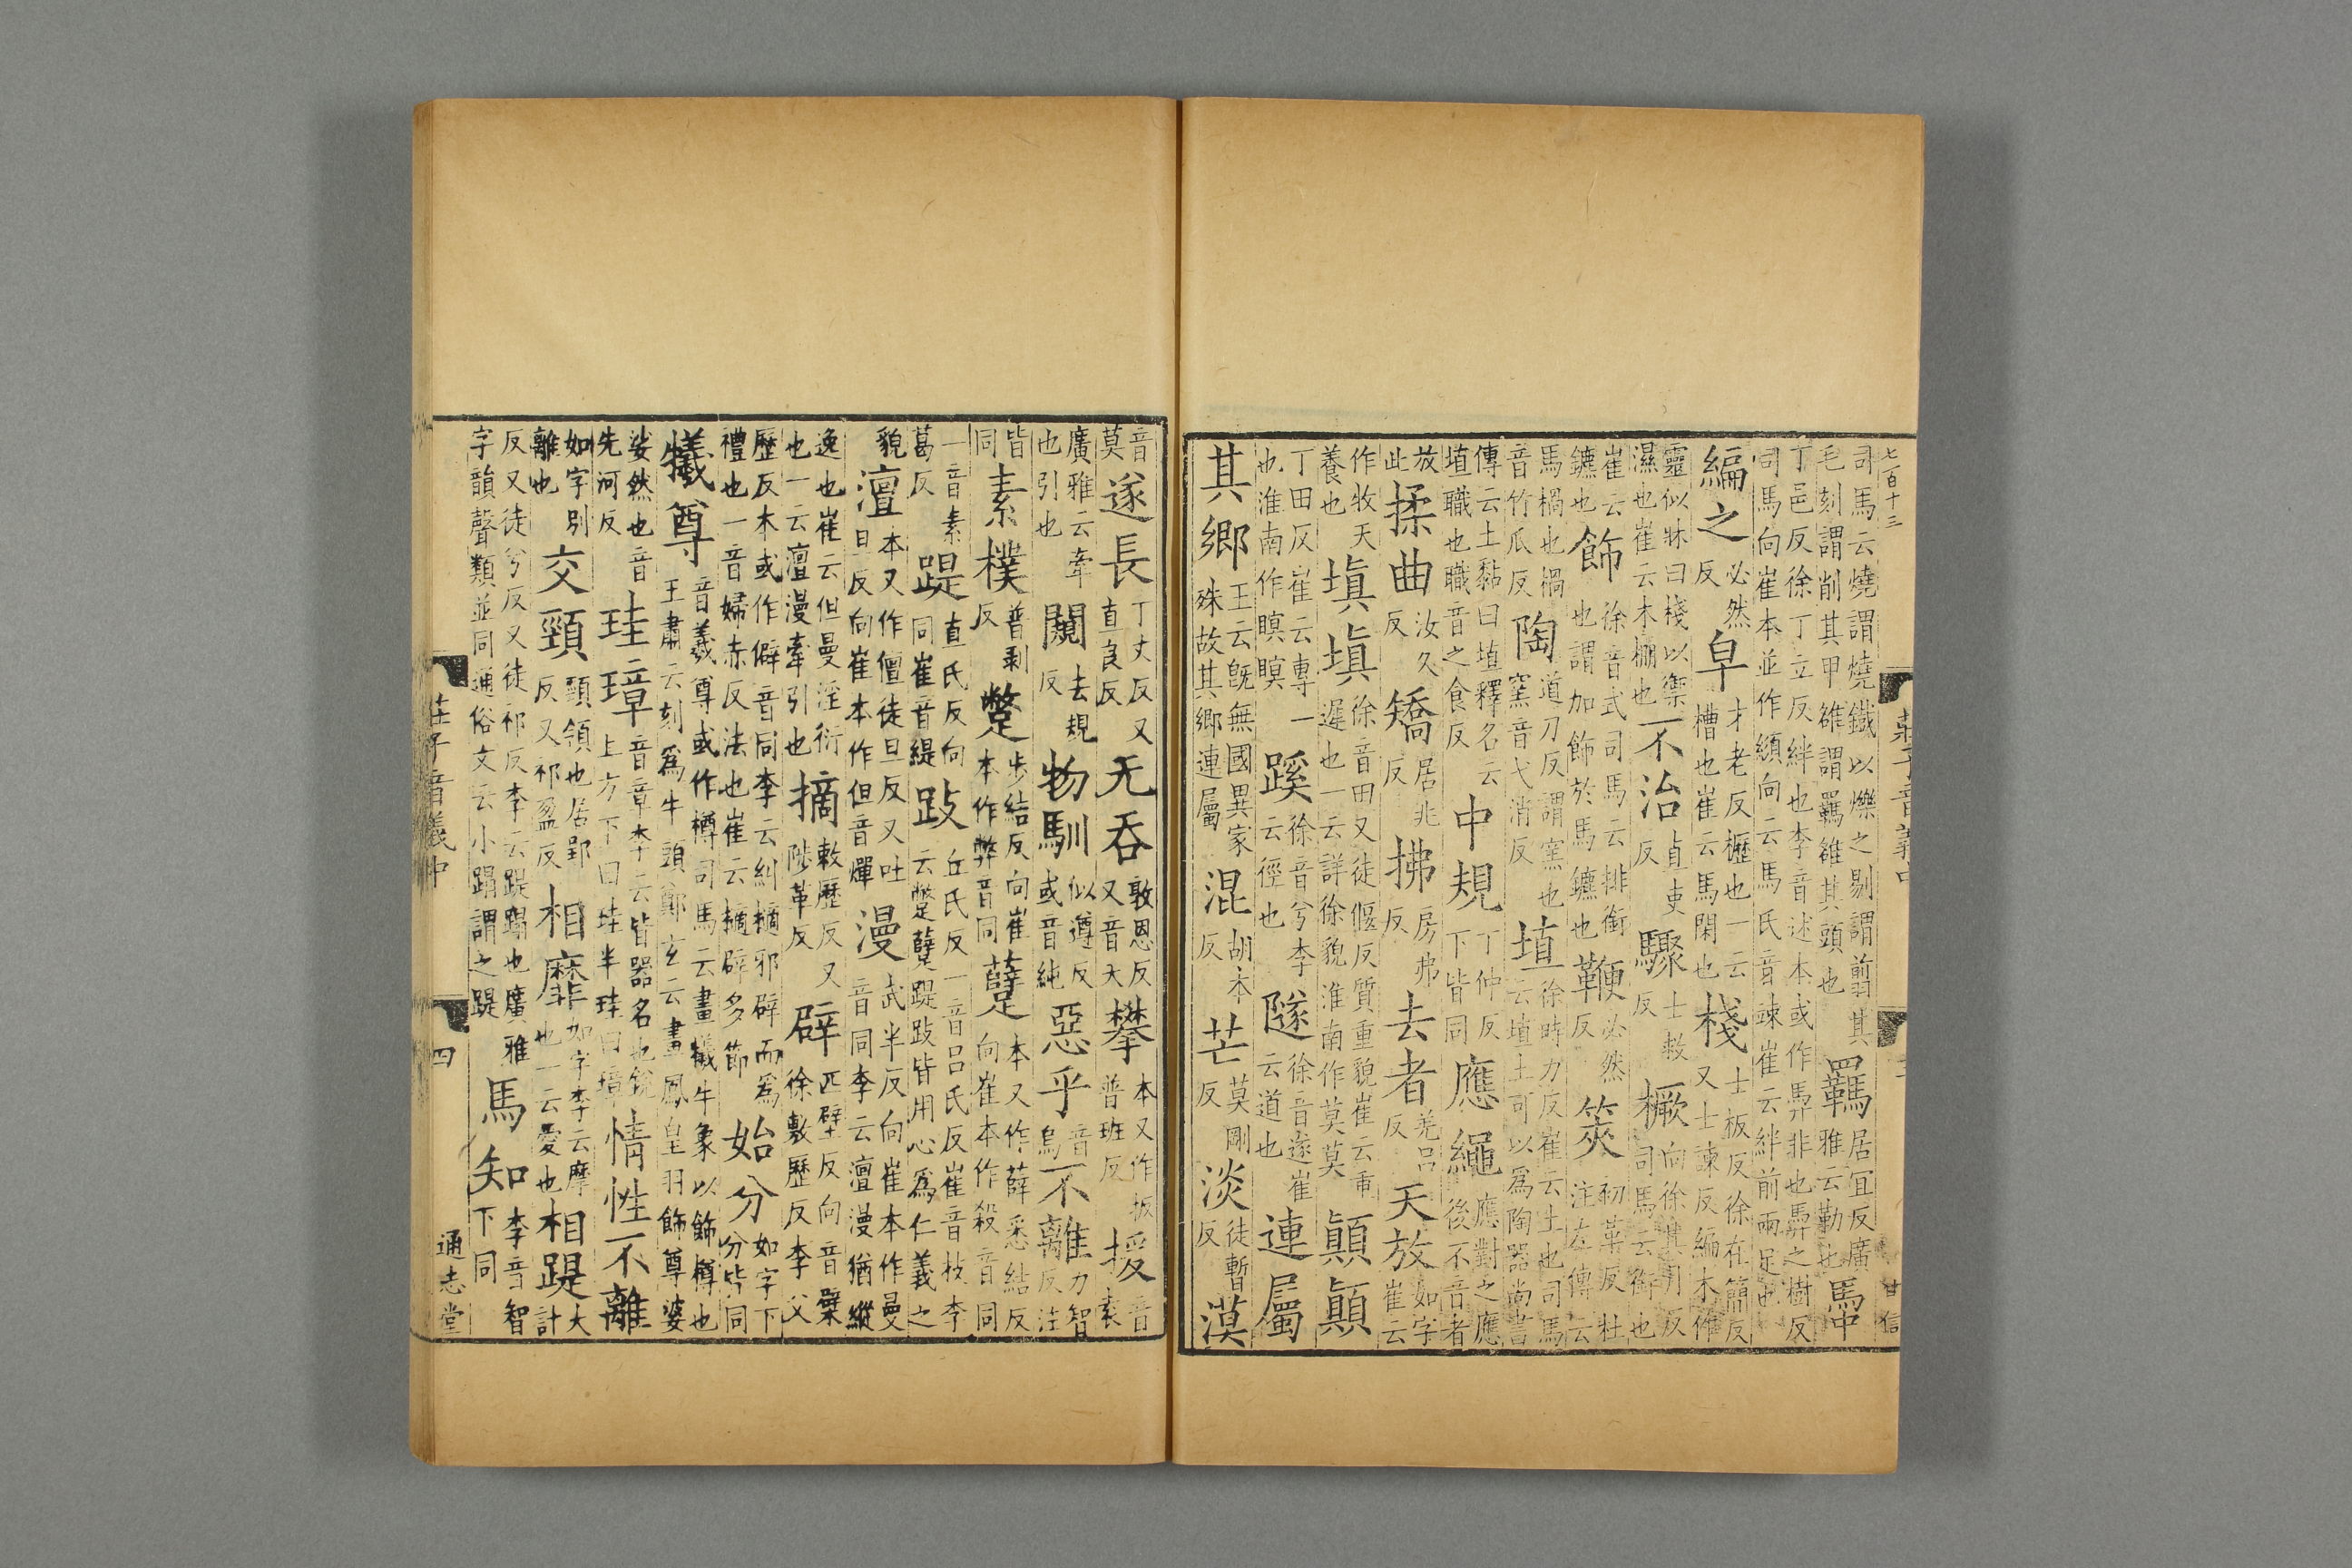 七百十三 莊子音義中 三 甘信
司馬云燒謂燒鐵以爍之剔謂翦其毛刻謂削其甲雒謂羈雒其頭也 羈 居宜反廣雅云勒也 馬中
丁邑反徐丁立反絆也李音述本或作馽非也馽之樹反司馬向崔本並作䌫向云馬氏音竦崔云絆前兩足也
編之 必然反 皁 才老反櫪也一云槽也崔云馬閑也 棧 士板反徐在簡反又士諫反編木作
靈似牀曰棧以禦濕也崔云木棚也 不治 直吏反 驟 士救反 橛 向徐其月反司馬云銜也
崔云鑣也 飾 徐音式司馬云排銜也謂加飾於馬鑣也 鞭 必然反 筴 初革反杜注左傳云
馬檛也檛音竹瓜反 陶 道刀反謂窯也窯音弋消反 埴 徐時力反崔云土也司馬云埴土可以爲陶器尚書
傳云土黏曰埴釋名云埴職也職音之食反 中規 丁仲反下皆同 應繩 應對之應後不音者
放此 揉曲 汝久反 矯 居兆反 拂 房弗反 去者 羌呂反 天放 如字崔云
作牧天養也 塡塡 徐音田又徒偃反質重貌崔云重遲也一云詳徐貌淮南作莫莫 顚顚
丁田反崔云專一也淮南作瞑瞑 蹊 徐音兮李云徑也 隧 徐音遂崔云道也 連屬
其鄉 王云旣無國異家殊故其鄉連屬 混 胡本反 芒 莫剛反 淡 徒暫反 漠
音莫 遂長 丁丈反又直良反 无吞 敦恩反又音天 攀 本又作扳普班反 援 音袁
廣雅云牽也引也 闚 去規反 物馴 似遵反或音純 惡乎 音烏 不離 力智反注
皆同 素樸 普剥反 蹩 步結反向崔本作弊音同 躠 本又作薛悉結反向崔本作殺音同
一音素葛反 踶 直氏反向同崔音緹 跂 丘氏反一音呂氏反崔音枝李云蹩躠踶跂皆用心爲仁義之
貌 澶 本又作儃徒旦反又吐旦反向崔本作但音燀 漫 武半反向崔本作曼音同李云澶漫猶縱
逸也崔云但曼淫衍也一云澶漫牽引也 摘 敕歷反又陟革反 辟 匹壁反向音檗徐敷歷反李父
歷反本或作僻音同李云糾摘邪辟而爲禮也一音婦赤反法也崔云擿辟多節 始分 如字下分皆同
犧尊 音羲尊或作樽司馬云畫犧牛象以飾樽也王肅云刻爲牛頭鄭玄云畫鳳皇羽飾尊婆
娑然也音先河反 珪璋 音章李云皆器名也銳上方下曰珪半珪曰璋 情性不離
如字別離也 交頸 頸領也居郢反又祁盈反 相靡 如字李云摩也一云愛也 相踶 大計
反又徒兮反又徒祁反李云踶蹋也廣雅字韻聲類並同通俗文云小蹋謂之踶 馬知 李音智下同
莊子音義中 四 通志堂